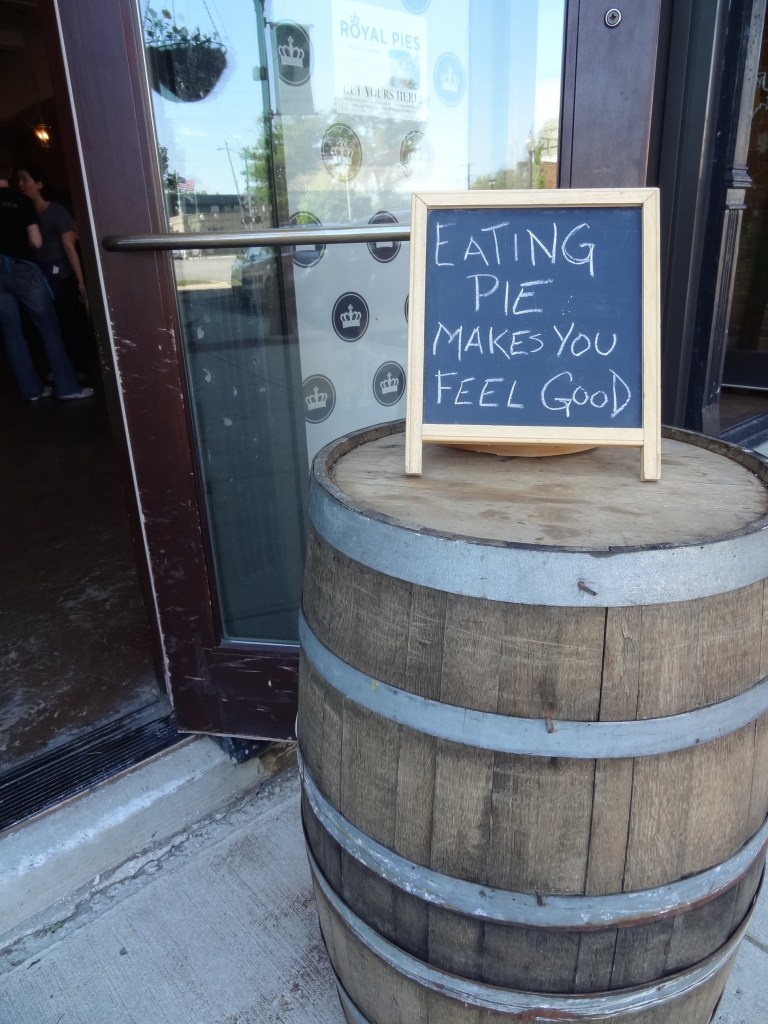 ROYAL PIES
GET YOURS HERE!
EATING
PIE
MAKES YOU
FEEL GOOD